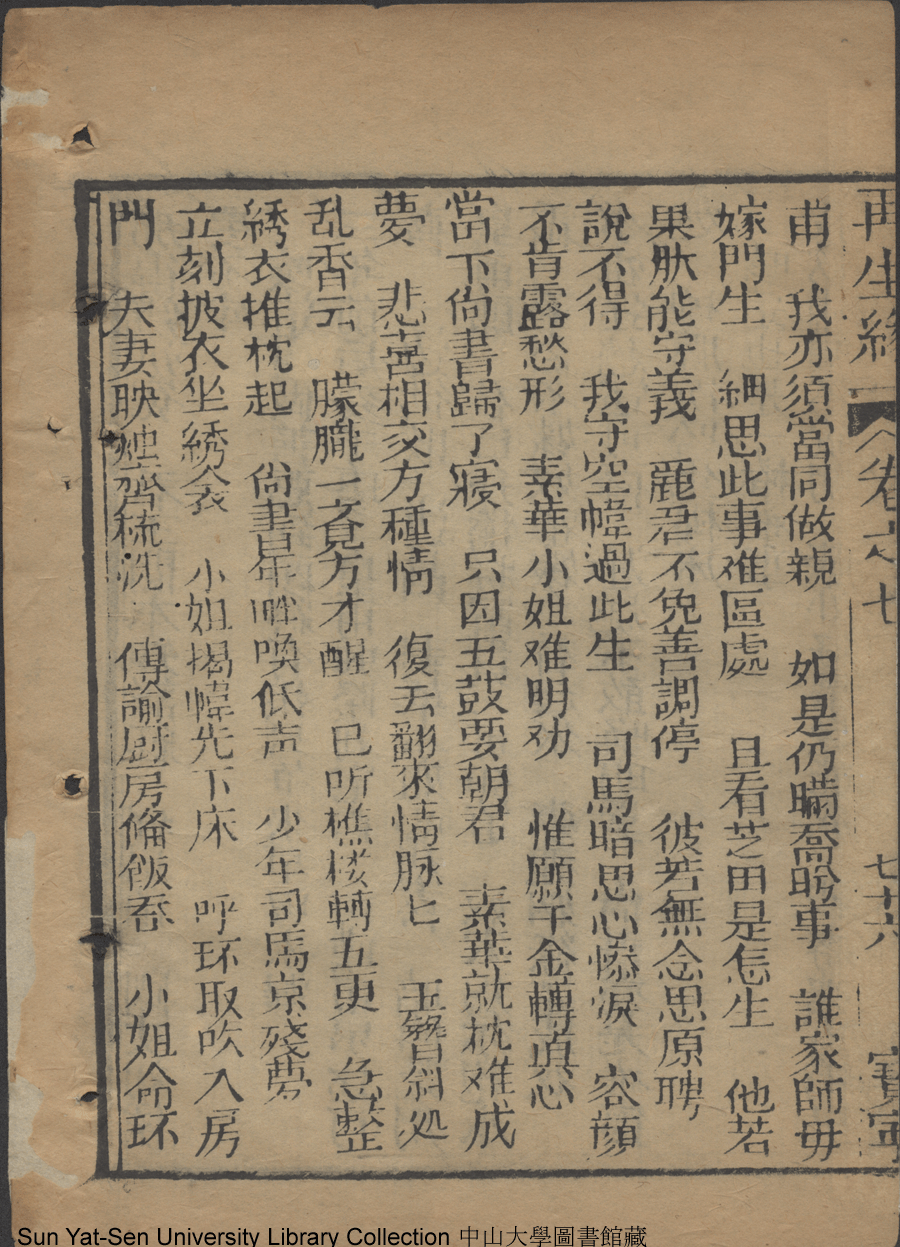 再生緣 卷之七 七十六 寶寧
甫 我亦須當同做親 如是仍瞞喬粧事 誰家師毋
嫁門生 細思此事难區處 且看芝田是怎生 他若
果肰能守義 麗君不免善調停 彼若無念思原聘
說不得 我守空幃過此生 司馬暗思心慘淚 容顔
不肯露愁形 素華小姐难明劝 惟願千金轉真心
當下尚書歸了寢 只因五鼓要朝君 素華就枕难成
夢 悲喜相交方種情 復去翻來情脉匕 玉簪斜処
乱香云 朦朧一覚方才醒 已听樵楼轉五更 急整
綉衣推枕起 尚書星眸喚低声 少年司馬京殘夢
立刻披衣坐綉衾 小姐揭幃先下床 呼环取吹入房
門 夫妻映烛齊梳洗 傳諭厨房俻飯吞 小姐命环
Sun Yat-Sen University Library Collection 中山大學圖書館藏